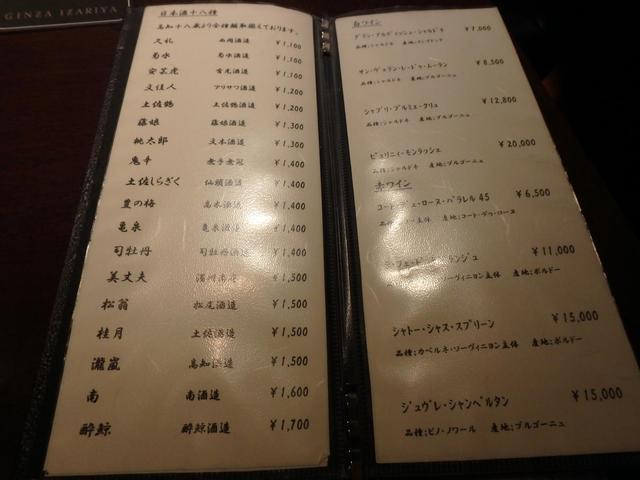 GINZA IZARIYA
日本酒十八種
高知十八蔵より全種類取揃えております。
文礼 西岡酒造 ¥1,100
菊水 菊水酒造 ¥1,100
安芸虎 有光酒造 ¥1,100
文佳人 アリサワ酒造 ¥1,200
土佐鶴 土佐鶴酒造 ¥1,200
藤娘 藤娘酒造 ¥1,300
桃太郎 文本酒造 ¥1,300
鬼辛 無手無冠 ¥1,400
土佐しらぎく 仙頭酒造 ¥1,400
豊の梅 高木酒造 ¥1,400
亀泉 亀泉酒造 ¥1,400
司牡丹 司牡丹酒造 ¥1,400
美丈夫 濱川商店 ¥1,500
松翁 松尾酒造 ¥1,500
桂月 土佐酒造 ¥1,500
瀧嵐 高知酒造 ¥1,500
南 南酒造 ¥1,600
酔鯨 酔鯨酒造 ¥1,700
白ワイン
グラン・アルディッシュ・シャルドネ ¥7,000
品種;シャルドネ 産地;
サン・ヴェラン・レ・ドゥ・ムーラン ¥8,500
品種;シャルドネ 産地;ブルゴーニュ
シャブリ・プルミエ・クリュ ¥12,800
品種;シャルドネ 産地;ブルゴーニュ
ピュリニィ・モンラッシェ ¥20,000
品種;シャルドネ 産地;ブルゴーニュ
赤ワイン
コート・デュ・ローヌ・パラレル45 ¥6,500
主体 産地;コート・デゥ・ローヌ
¥11,000
ソーヴィニヨン主体 産地;ボルドー
シャトー・シャス・スプリーン ¥15,000
品種;カベルネ・ソーヴィニヨン主体 産地;ボルドー
ジュヴレ・シャンベルタン ¥15,000
品種;ピノ・ノワール 産地;ブルゴーニュ